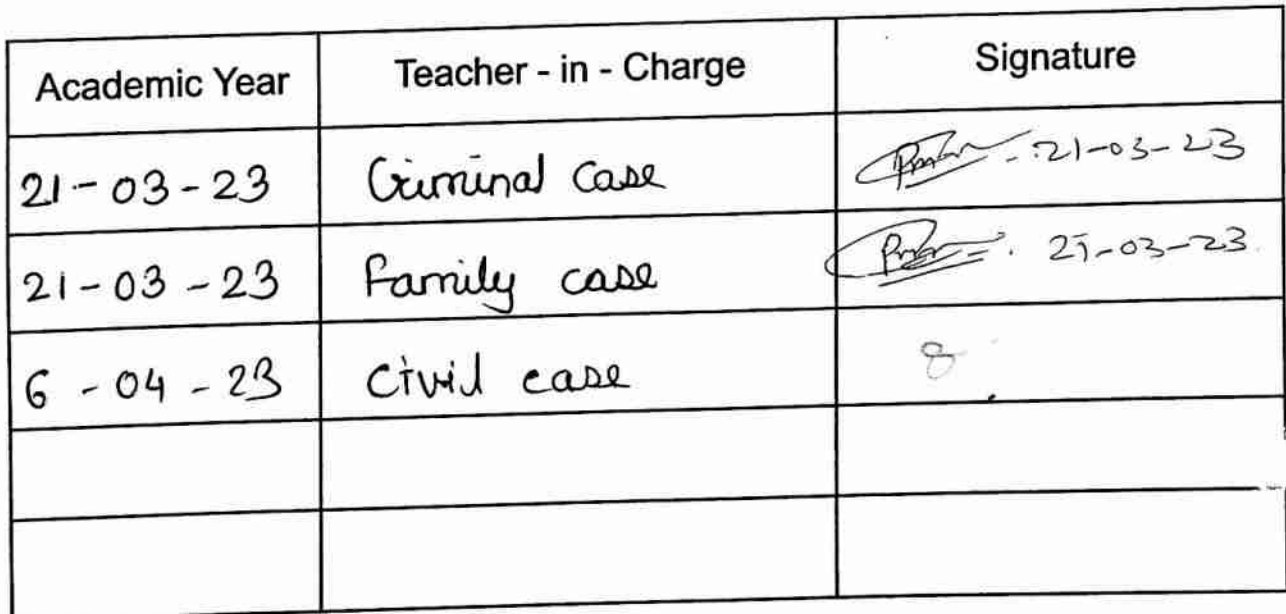 Academic Year Teacher - in - Charge Signature
21-03-23 Criminal Case 21-03-23
21-03-23 Family case 21-03-23
6-04-23 Civil case